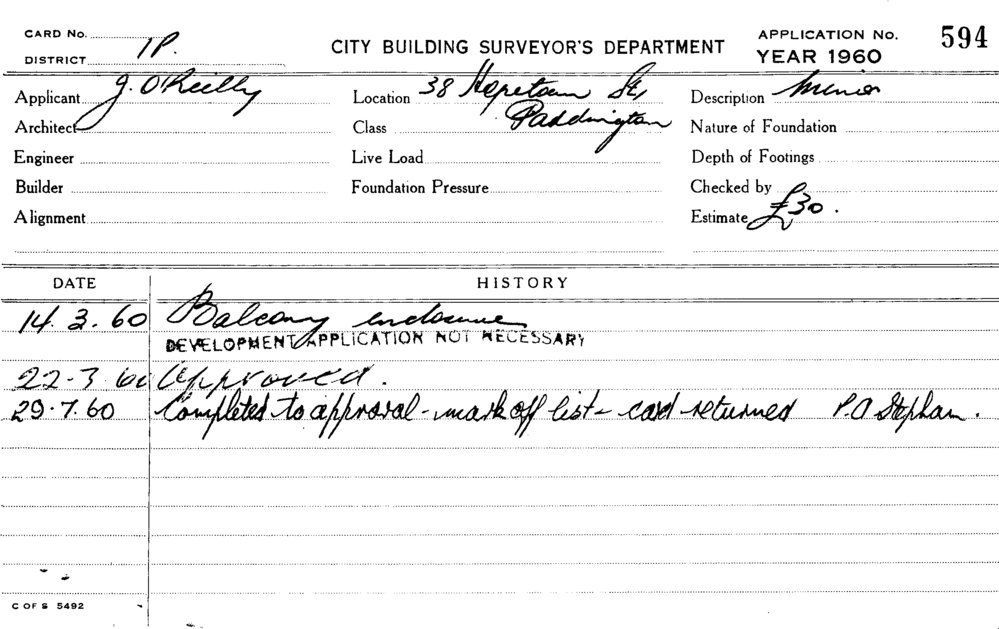 CARD No.
DISTRICT 1P.
CITY BUILDING SURVEYOR'S DEPARTMENT
APPLICATION No. 594
YEAR 1960
Applicant J. O'Reilly
Location 38 Hopetoun St,
Paddington
Description Minor
Architect
Class
Nature of Foundation
Engineer
Live Load
Depth of Footings
Builder
Foundation Pressure
Checked by
Alignment
Estimate £30.
DATE HISTORY
14.3.60 Balcony enclosure
DEVELOPMENT APPLICATION NOT NECESSARY
22-3-60 Approved.
29.7.60 Completed to approval - mark off list - card returned P.A Stephan.
C OF S 5492